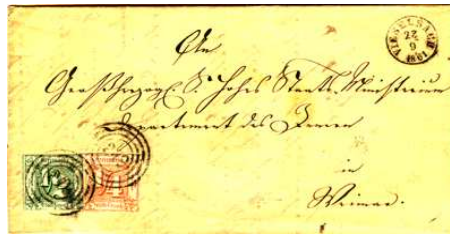 VIESELBACH
22
9
1861
An
Großherzogl. S. Hohes Staats-Ministerium
Departement des Innern
in
Weimar.